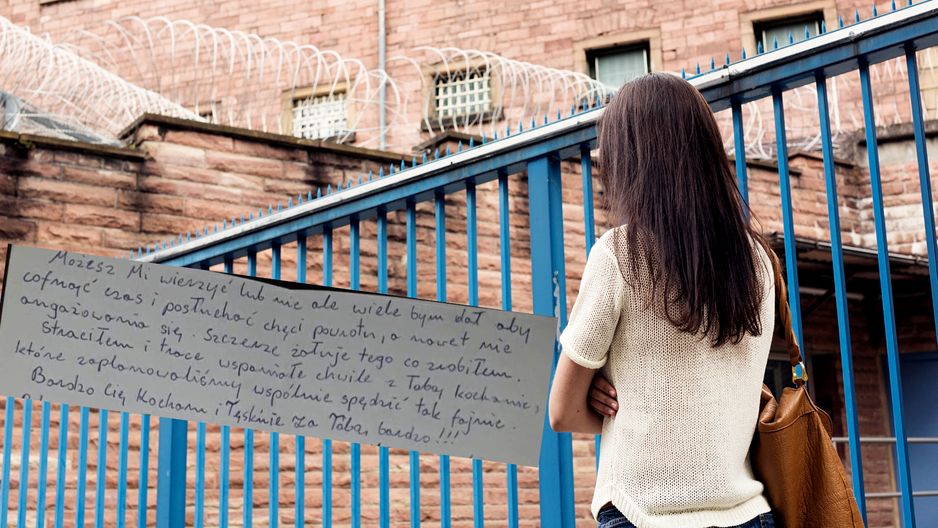 Możesz Mi wierzyć lub nie ale wiele bym dał aby
cofnąć czas i posłuchać chęci powrotu, a nawet nie
angażowania się. Szczerze żałuje tego co zrobiłem.
Straciłem i trace wspaniałe chwile z Tobą kochanie,
które zaplanowaliśmy wspólnie spędzić tak fajnie.
Bardzo Cię Kocham i Tęsknie za Tobą bardzo!!!